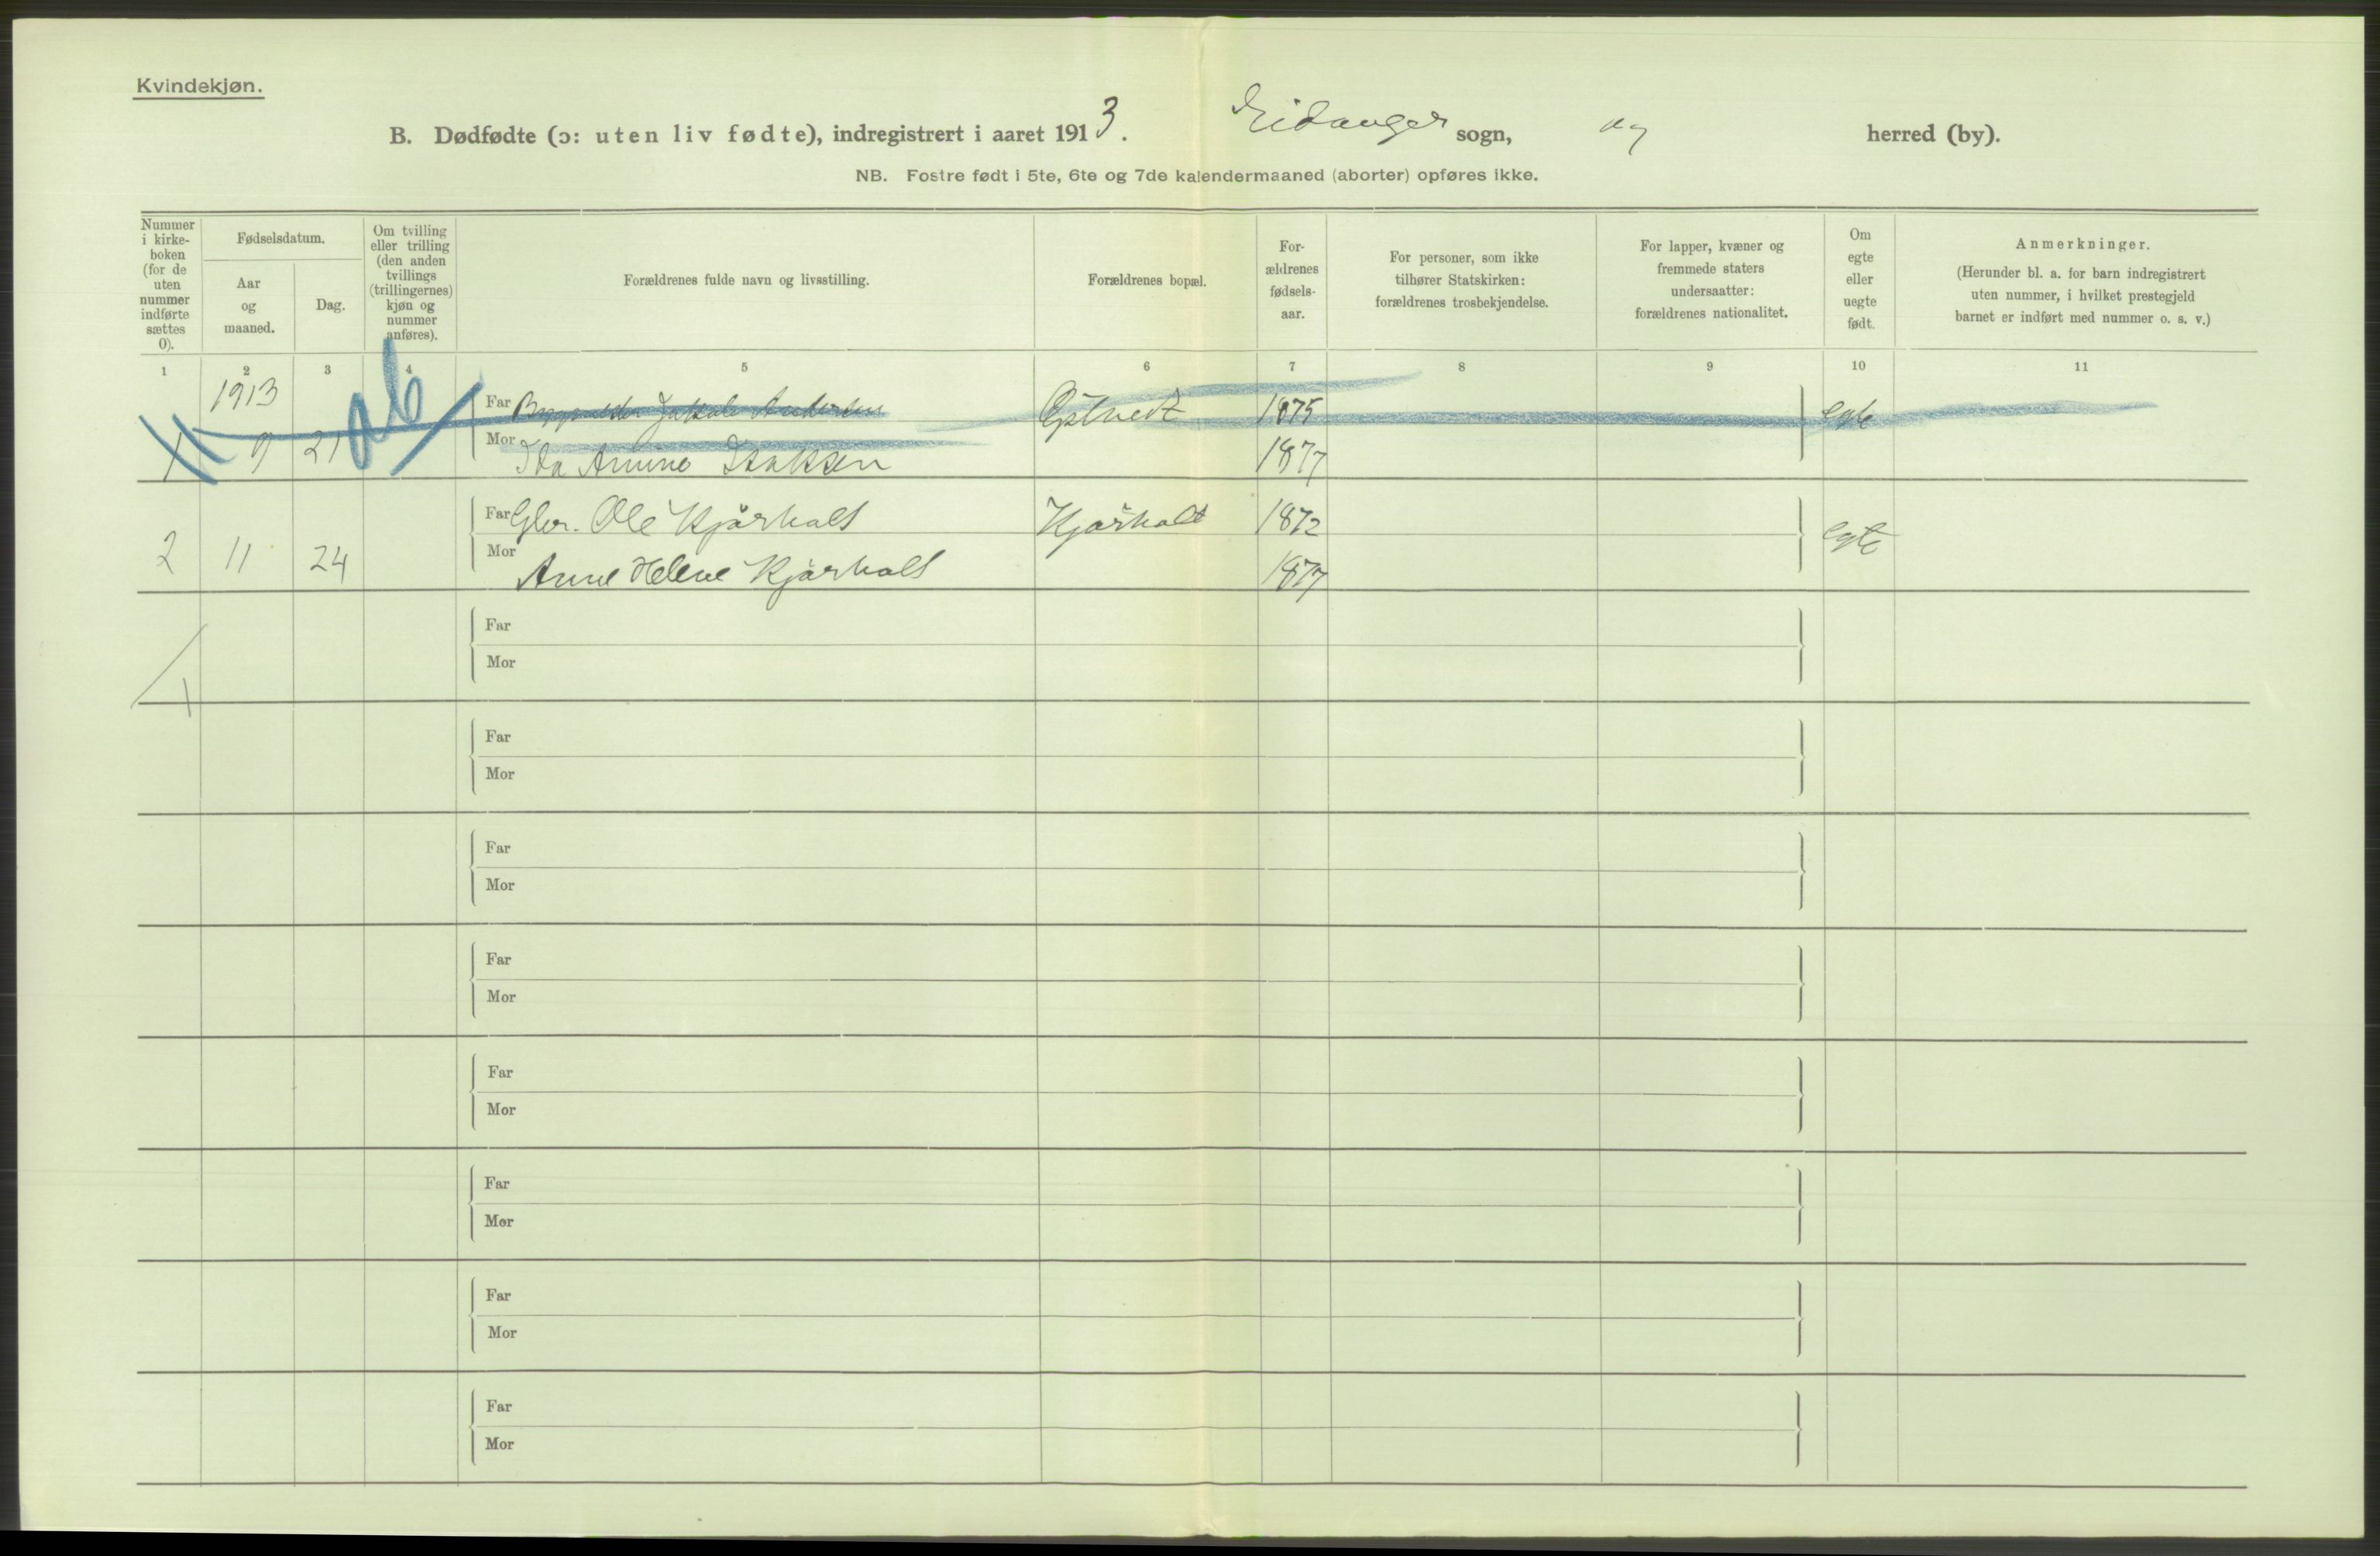 Kvindekjøn.
B. Dødfødte (ɔ: uten liv fødte), indregistrert i aaret 1913. Eidanger sogn, og herred (by).
NB. Fostre født i 5te, 6te og 7de kalendermaaned (aborter) opføres ikke.
Nummer i kirke-boken (for de uten nummer indførte sættes 0).
Fødselsdatum.
Aar og maaned.
Dag.
Om tvilling eller trilling (den anden tvillings (trillingernes) kjøn og nummer anføres).
Forældrenes fulde navn og livsstilling.
Forældrenes bopæl.
For-ældrenes fødsels-aar.
For personer, som ikke tilhører Statskirken: forældrenes trosbekjendelse.
For lapper, kvæner og fremmede staters undersaatter: forældrenes nationalitet.
Om egte eller uegte født.
Anmerkninger.
(Herunder bl. a. for barn indregistrert uten nummer, i hvilket prestegjeld barnet er indført med nummer o. s. v.)
1 2 3 4 5 6 7 8 9 10 11
1913
Far Jakob Andersen 1875 egte
1 9 21 ab
Mor Ida Amine Isaksen 1877
Far Gbr. Ole Kjørholt Kjørholt 1872 egte
2 11 24
Mor Anne Helene Kjørholt 1877
Far
Mor
Far
Mor
Far
Mor
Far
Mor
Far
Mor
Far
Mor
Far
Mor
Far
Mor